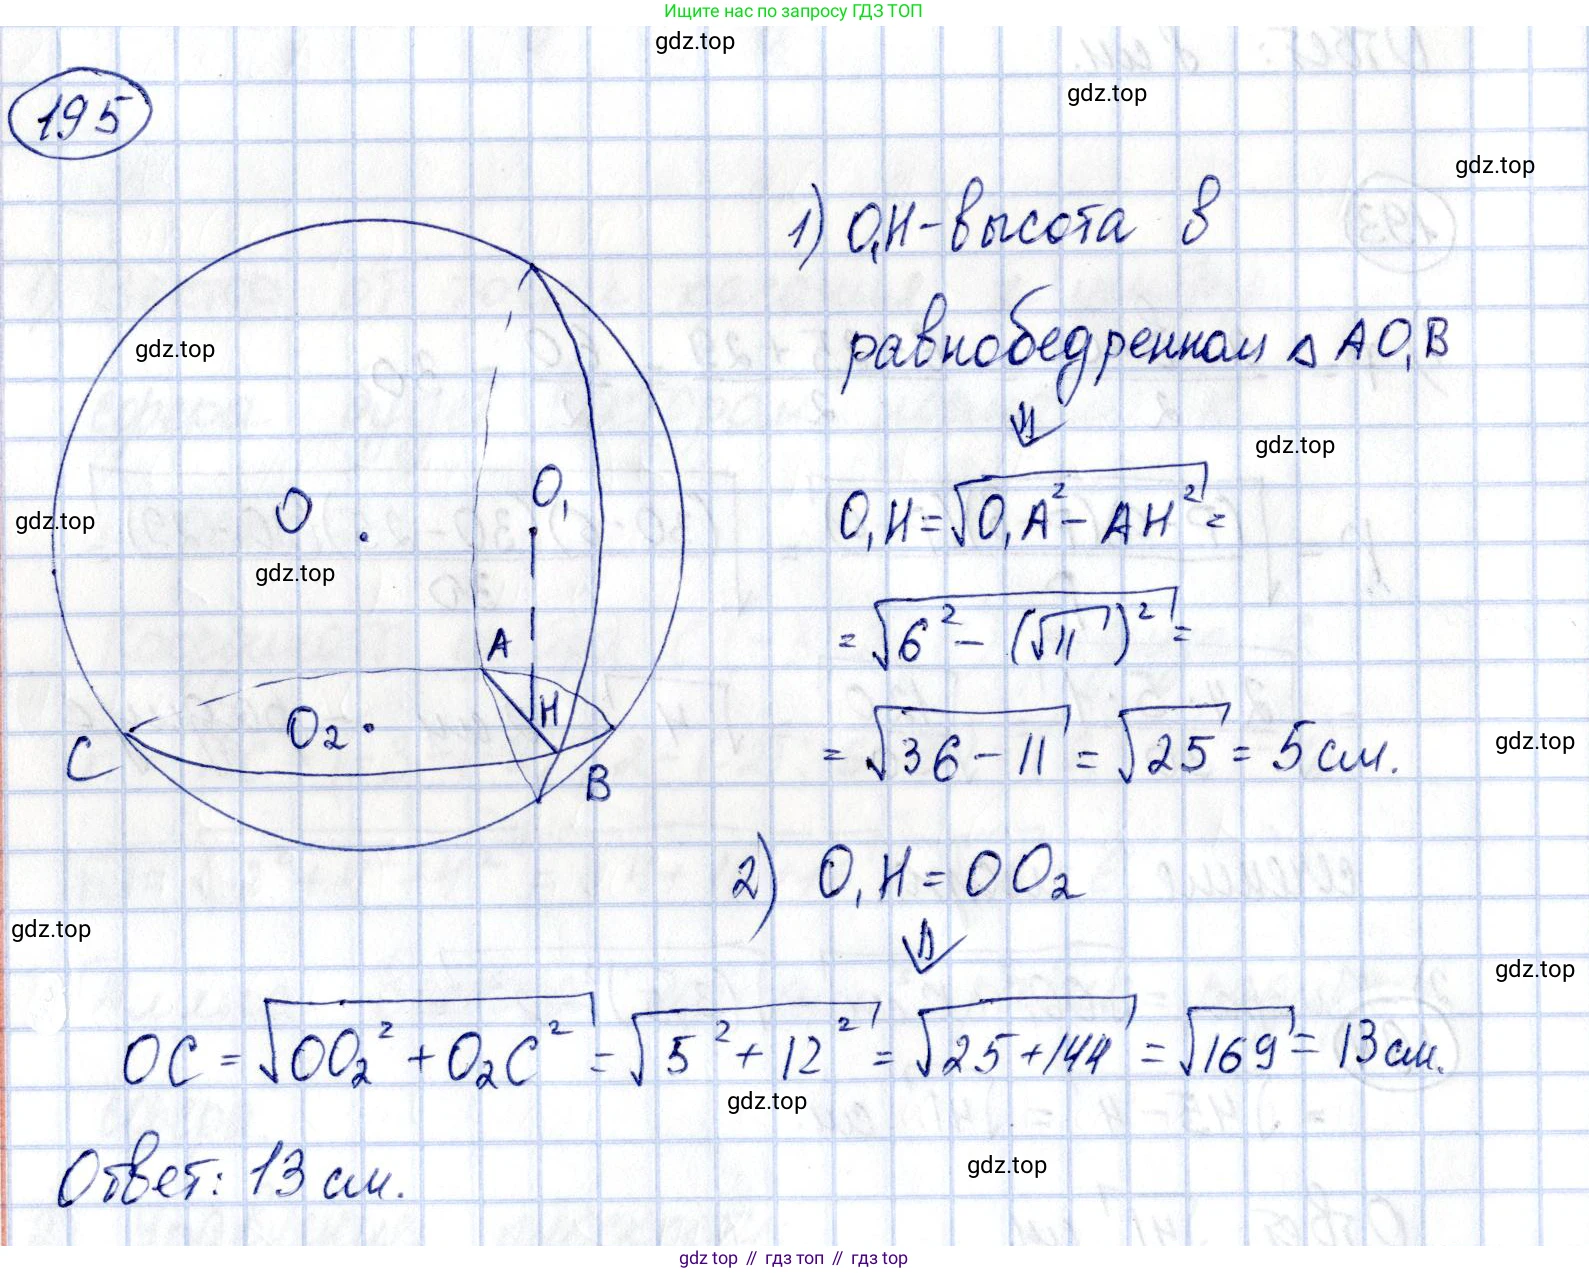 Ищите нас по запросу ГДЗ ТОП
gdz.top
gdz.top
195
gdz.top
1) O₁H - высота в
равнобедренном △ AO₁B
⇓
gdz.top
gdz.top
O₁H = √(O₁A² - AH²) =
O
O₁
gdz.top
gdz.top
= √(6² - (√11)²) =
A
H
O₂
C
B
= √(36 - 11) = √25 = 5 см.
gdz.top
2) O₁H = OO₂
⇓
gdz.top
gdz.top
OC = √(OO₂² + O₂C²) = √(5² + 12²) = √(25 + 144) = √169 = 13 см.
gdz.top
Ответ: 13 см.
gdz.top
gdz top // гдз топ // гдз top